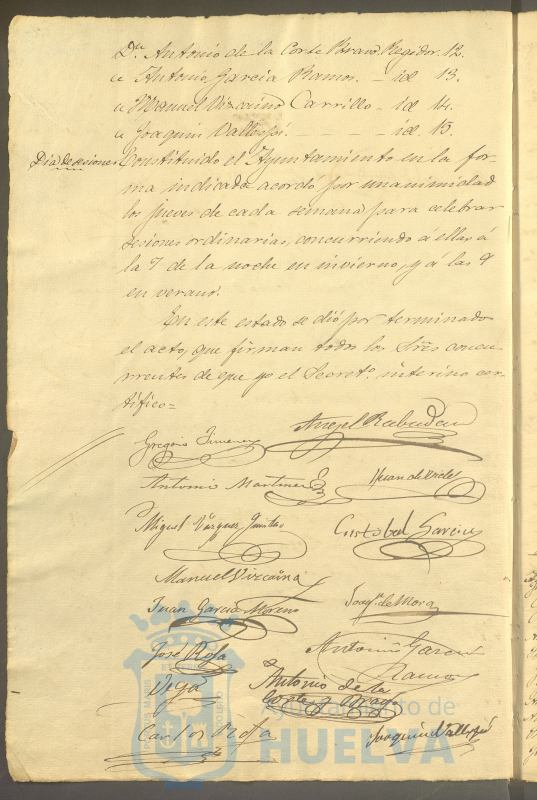 Dn. Antonio de la Corte Bravo. Regidor 12.
" Antonio Garcia Ramos. - id 13.
" Manuel Vizcaino Carrillo - id 14.
" Joaquin Vallespi. - - - id. 15.
Dia de sesiones Constituido el Ayuntamiento en la for-
ma indicada acordó por unanimidad
los jueves de cada semana para celebrar
sesiones ordinarias, concurriendo á ellas á
la 7 de la noche en invierno, y á las 9
en verano.
En este estado se dió por terminado
el acto, que firman todos los Sres concu-
rrentes de que yo el Secreto. interino cer-
tifico=
Gregorio Jimenez Angel Rabadan
Antonio Martinez Juan de
Miguel Vázquez Cristobal Garcia
Manuel Vizcaino
Juan Garcia Moreno Joaqn. de Mora
José Rofa Antonio Garcia
Ramos
Vega Antonio de la
Corte y Bravo
Carlos Rofa Joaquin Vallespi
Ayuntamiento de
HUELVA